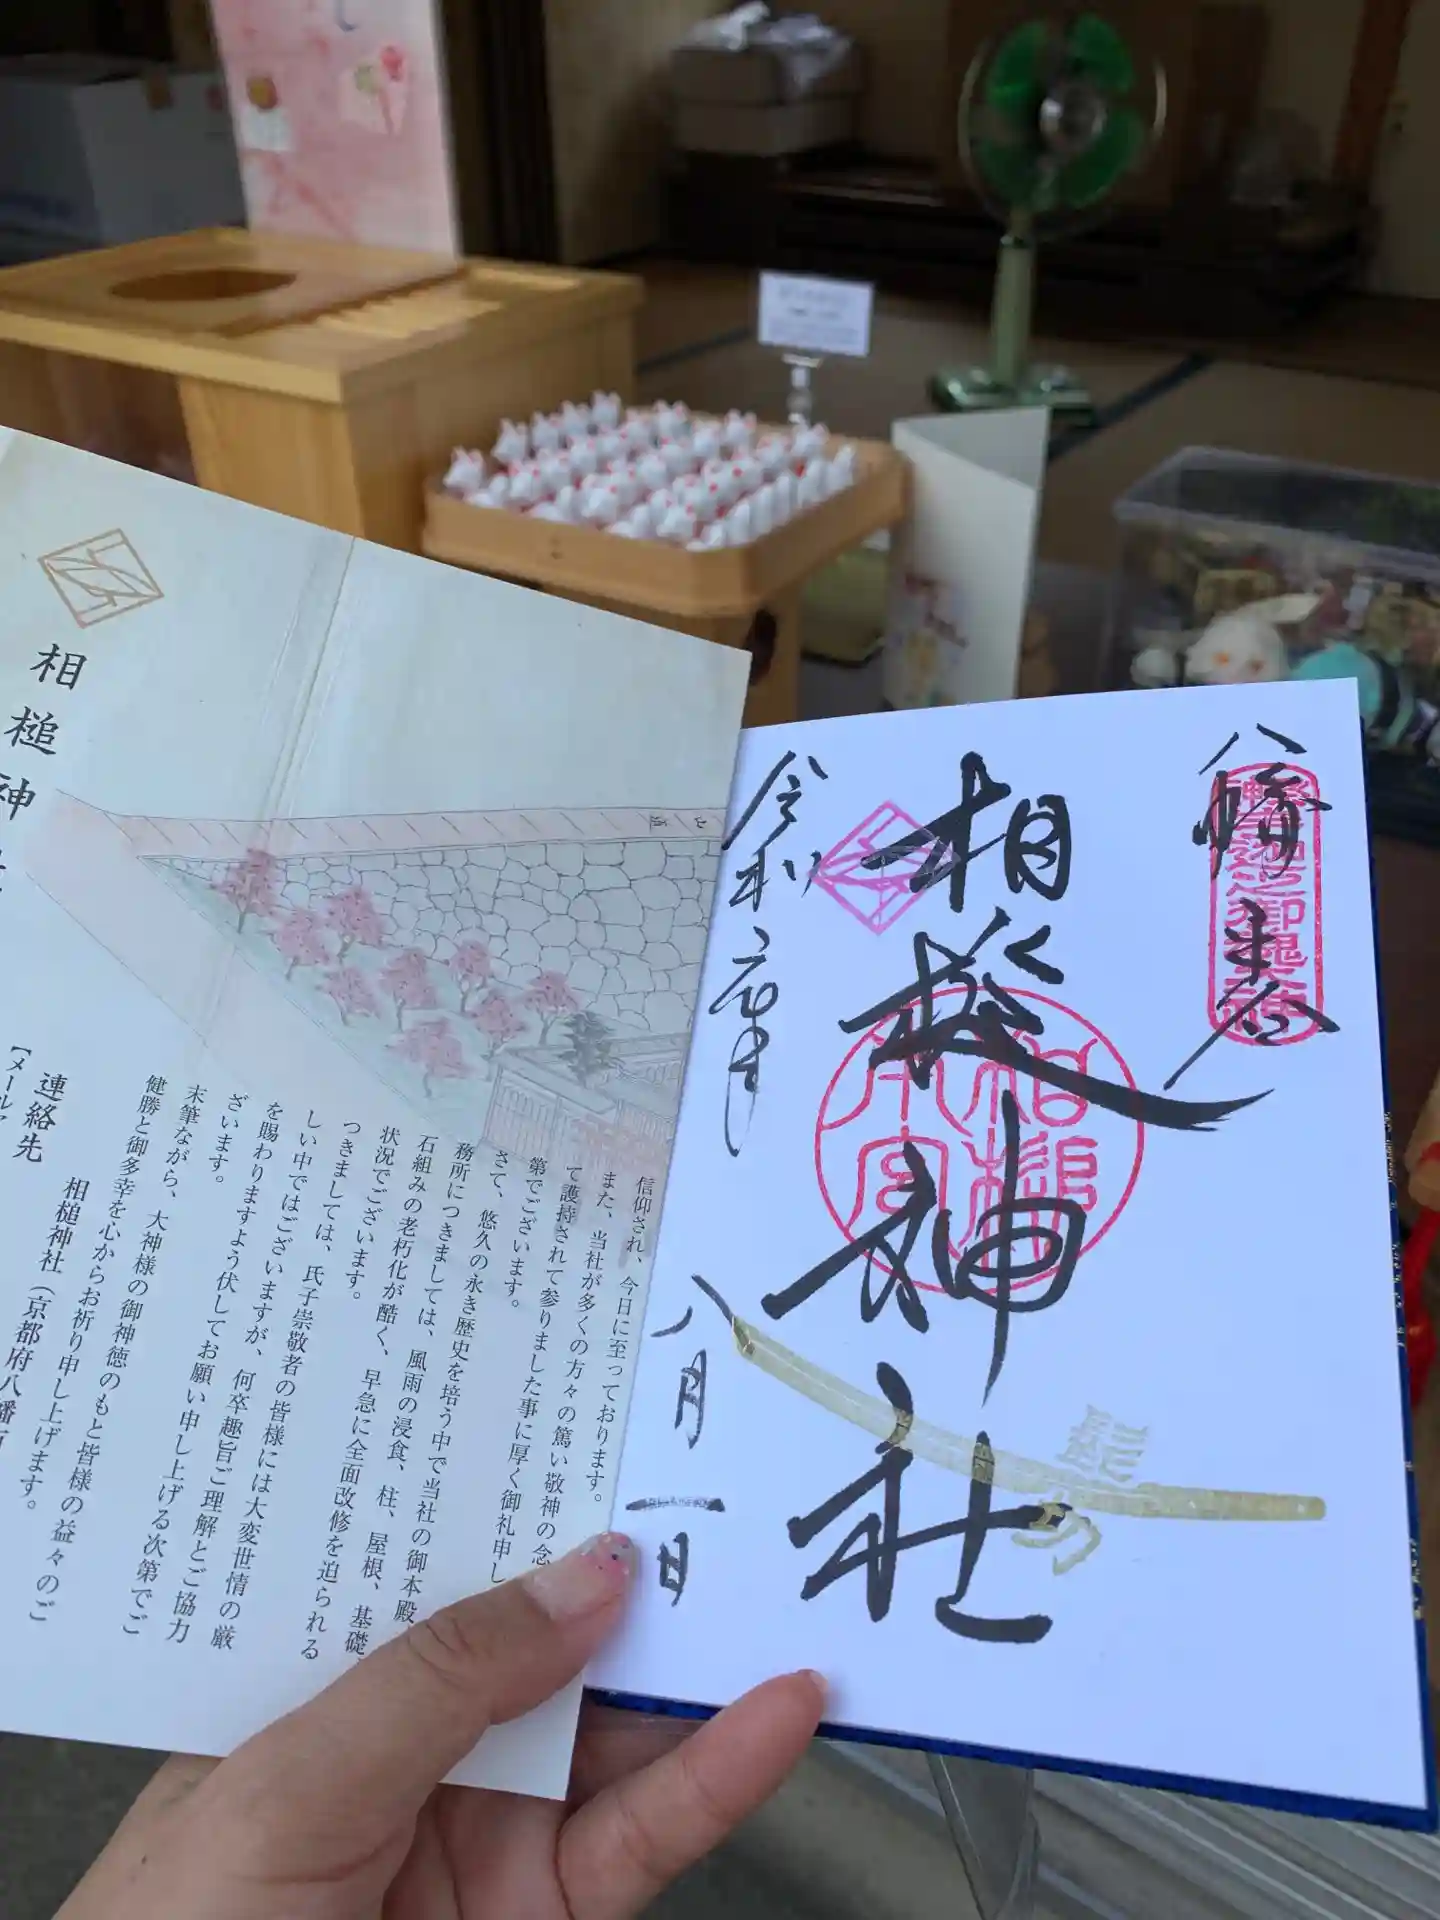 八幡市
相槌神社
令和六年
八月一日
相槌
本宮
髭切
相槌神社
信仰され、今日に至っております。
また、当社が多くの方々の篤い敬神の念
て護持されて参りました事に厚く御礼申し
第でございます。
さて、悠久の永き歴史を培う中で当社の御本殿、
務所につきましては、風雨の浸食、柱、屋根、基礎、
石組みの老朽化が酷く、早急に全面改修を迫られる
状況でございます。
つきましては、氏子崇敬者の皆様には大変世情の厳
しい中ではございますが、何卒趣旨ご理解とご協力
を賜わりますよう伏してお願い申し上げる次第でご
ざいます。
末筆ながら、大神様の御神徳のもと皆様の益々のご
健勝と御多幸を心からお祈り申し上げます。
相槌神社（京都府八幡市
連絡先
【メールア